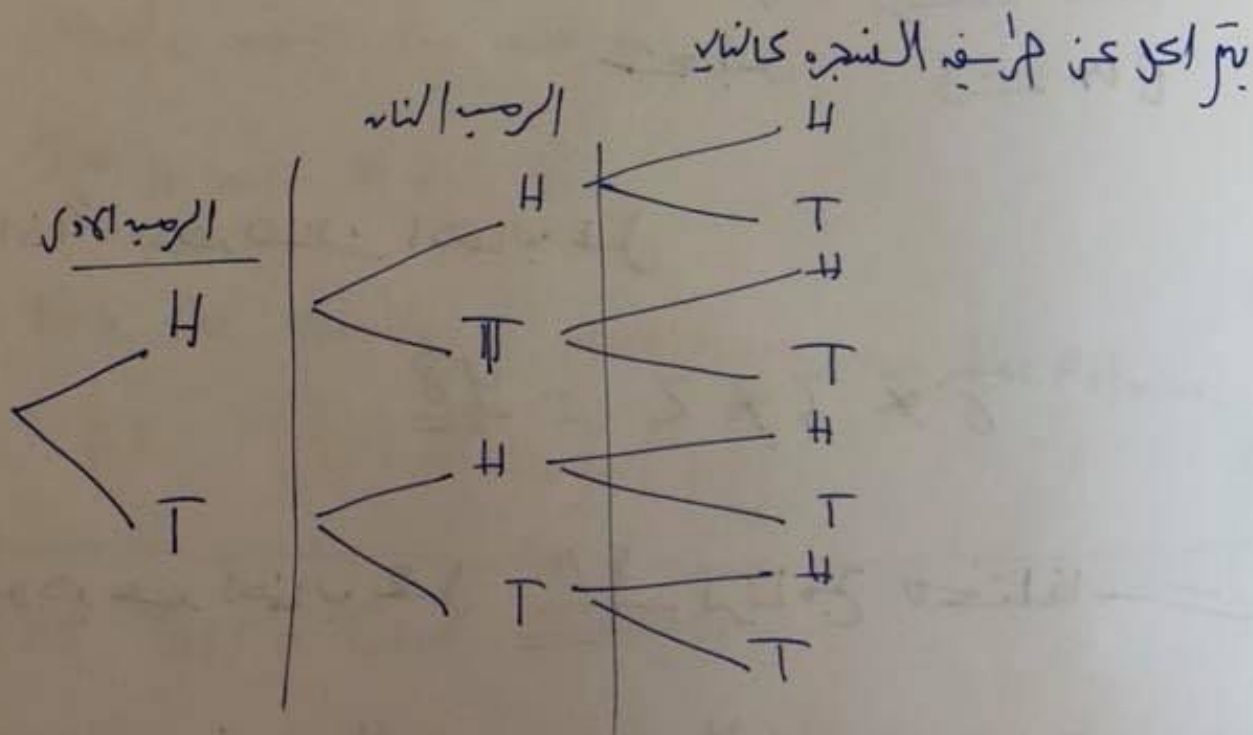 يتم الحل عن طريق الشجره كالتالي
الرميه الثانيه
الرميه الاولى
H
T
H
T
H
T
H
T
H
T
H
T
H
T